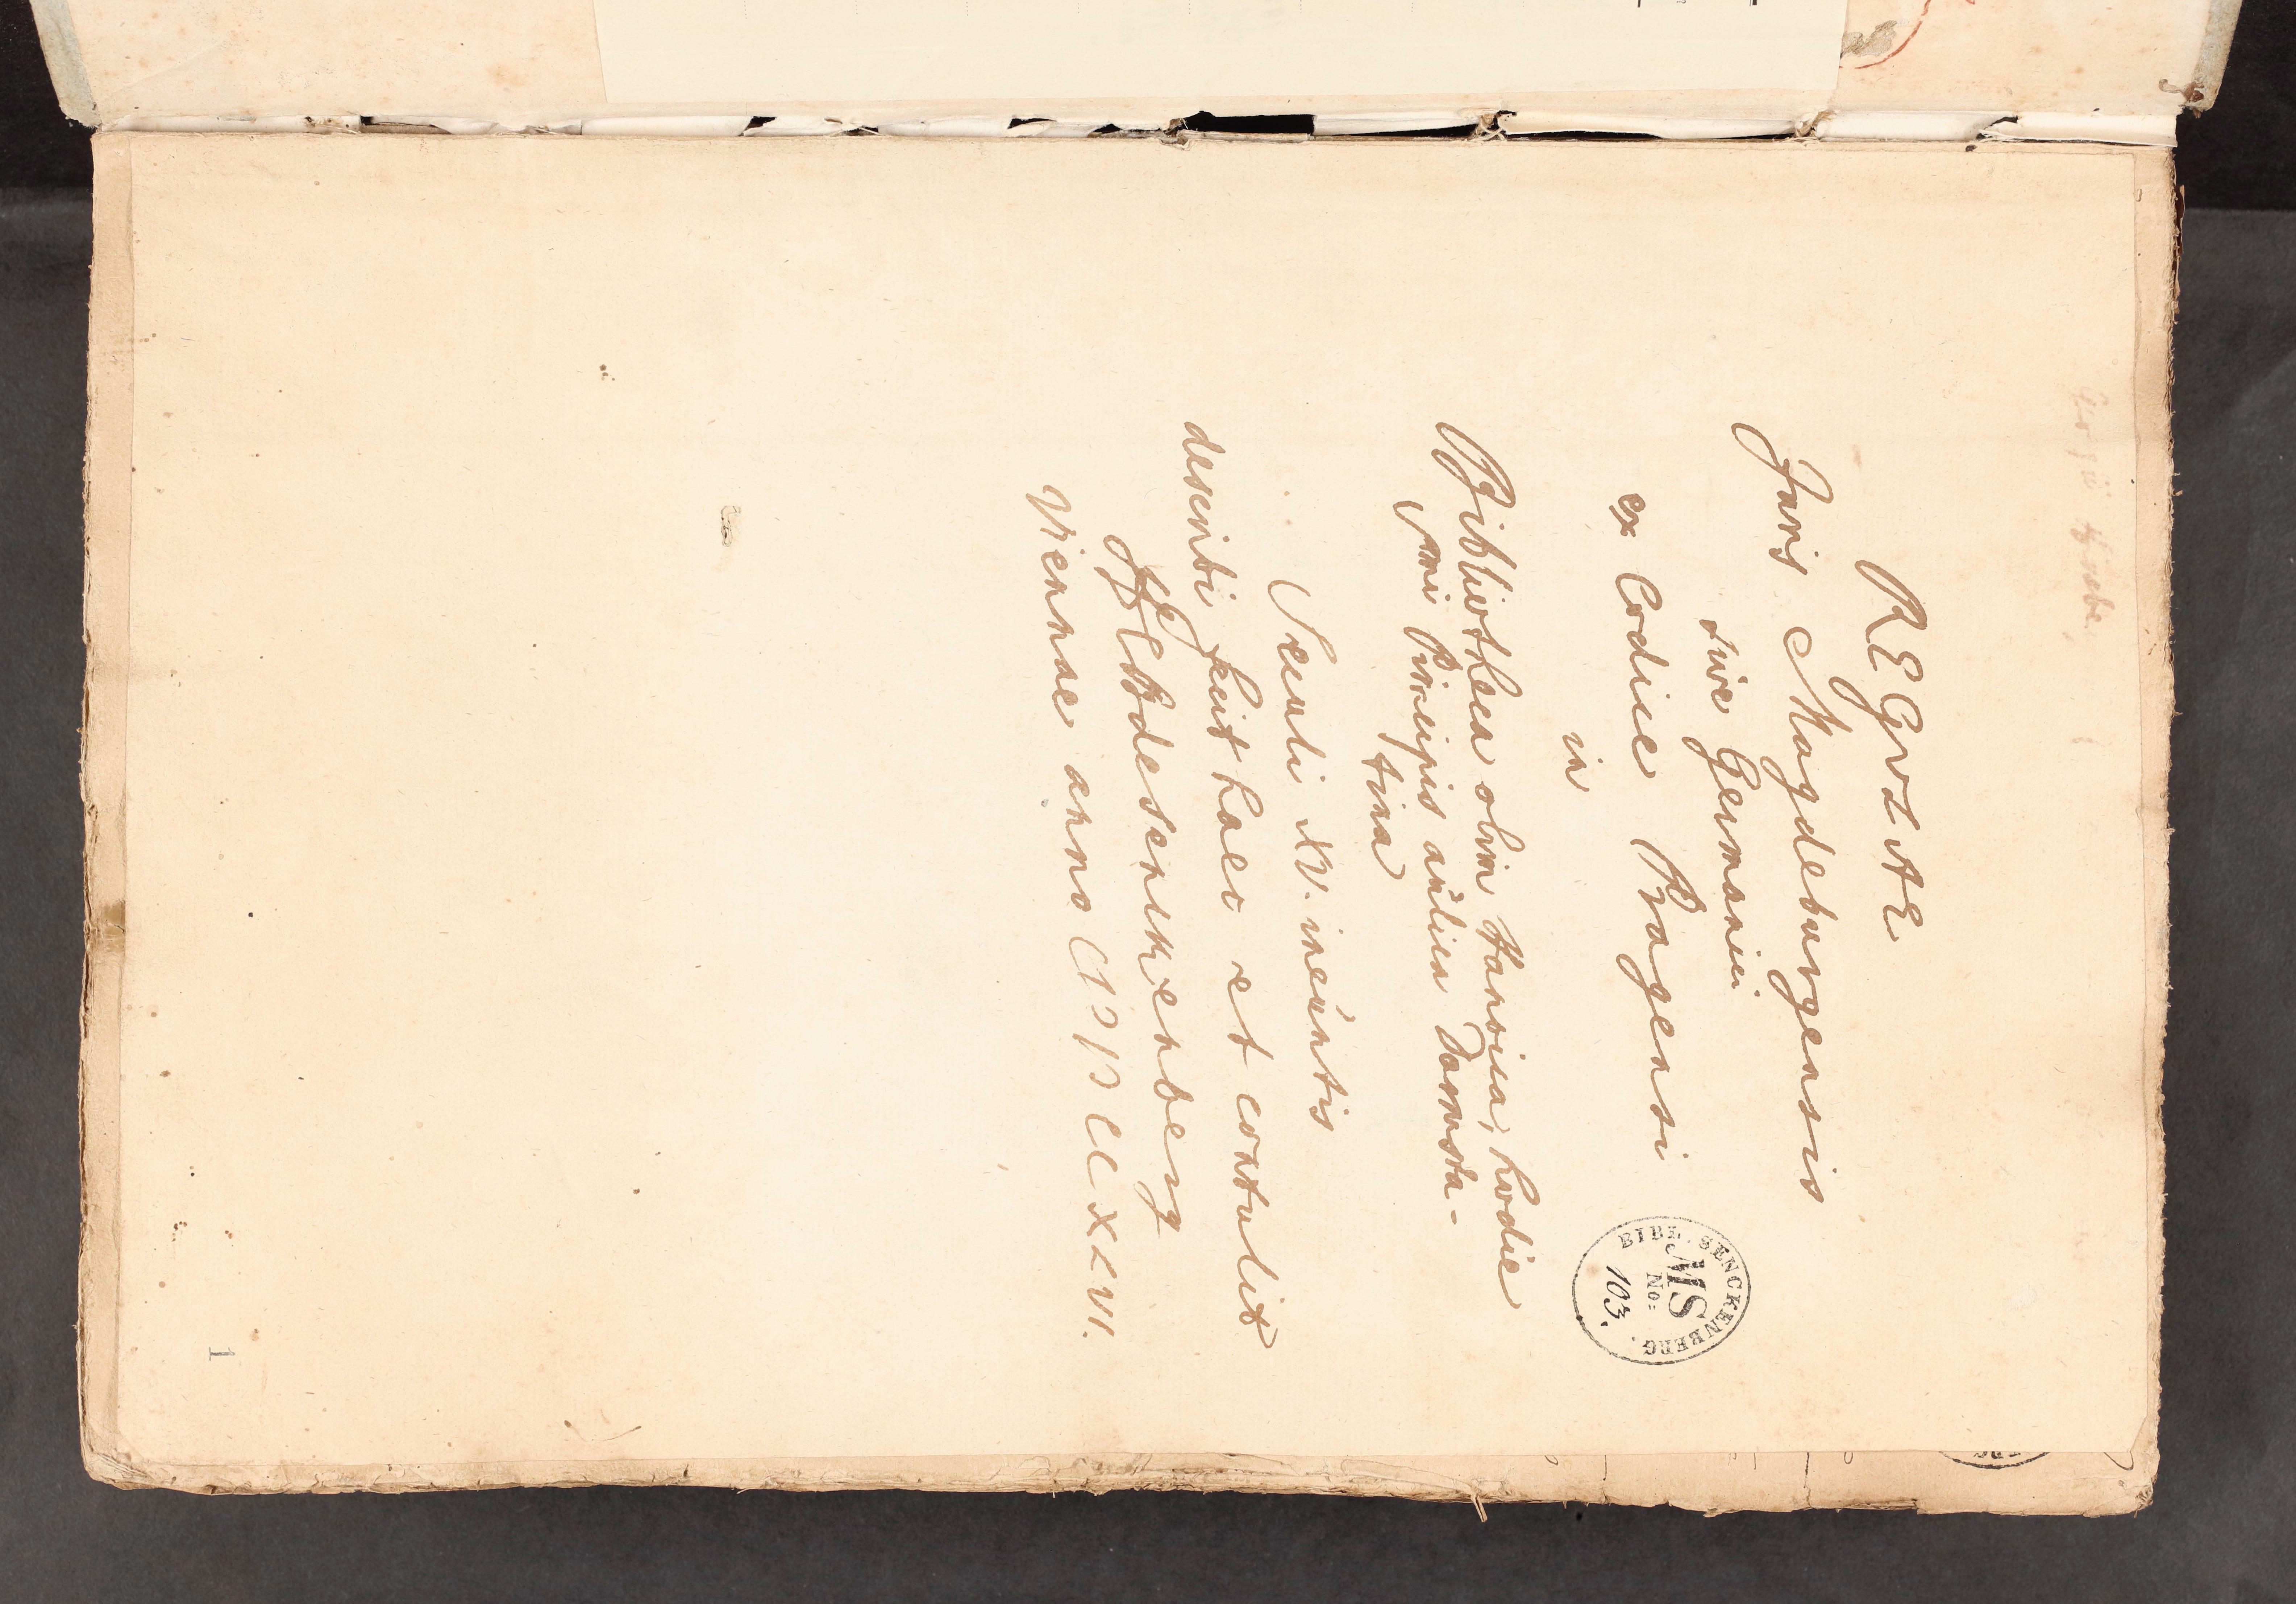 REGULAE
Juris Magdeburgensis
sive Germanici
ex Codice Pragensi
in
Bibliotheca olim Hansiica, hodie
smi Principis aulica Darmsta-
tina
Seculi XV. ineúntis
describi fecit haec et contulit
HCLBdeSenckenberg
Viennae anno CIƆIƆCCXXVI.
BIBL. SENCKENBERG.
MS
No:
103.
1